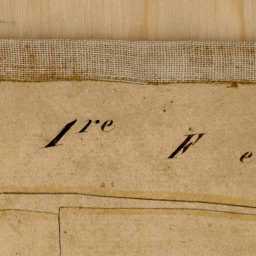 1re F e